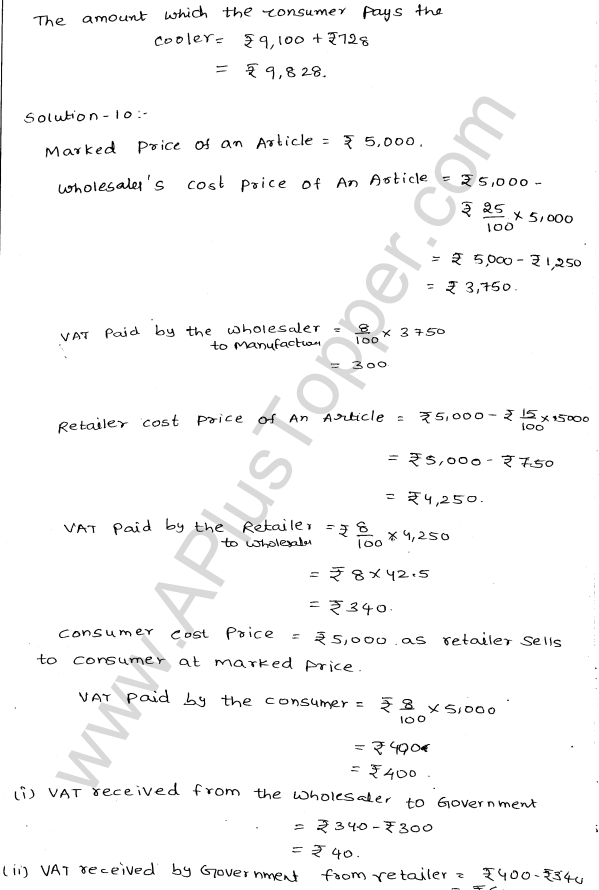 The amount which the consumer pays the
cooler = ₹9,100 + ₹728
= ₹9,828.
Solution-10:-
Marked Price of an Article = ₹5,000.
Wholesaler's cost price of An Article = ₹5,000 -
₹ 25/100 × 5,000
= ₹5,000 - ₹1,250
= ₹3,750.
VAT Paid by the wholesaler = 8/100 × 3750
to Manufacturer
= 300
Retailer cost price of An Article = ₹5,000 - ₹ 15/100 × 5000
= ₹5,000 - ₹750
= ₹4,250.
VAT Paid by the Retailer = ₹ 8/100 × 4,250
to wholesaler
= ₹8 × 42.5
= ₹340.
Consumer cost Price = ₹5,000 as retailer sells
to consumer at marked price.
VAT paid by the consumer = ₹ 8/100 × 5,000
= ₹400
= ₹400.
(i) VAT received from the wholesaler to Government
= ₹340 - ₹300
= ₹40.
(ii) VAT received by Government from retailer = ₹400 - ₹340
www.APlusTopper.com